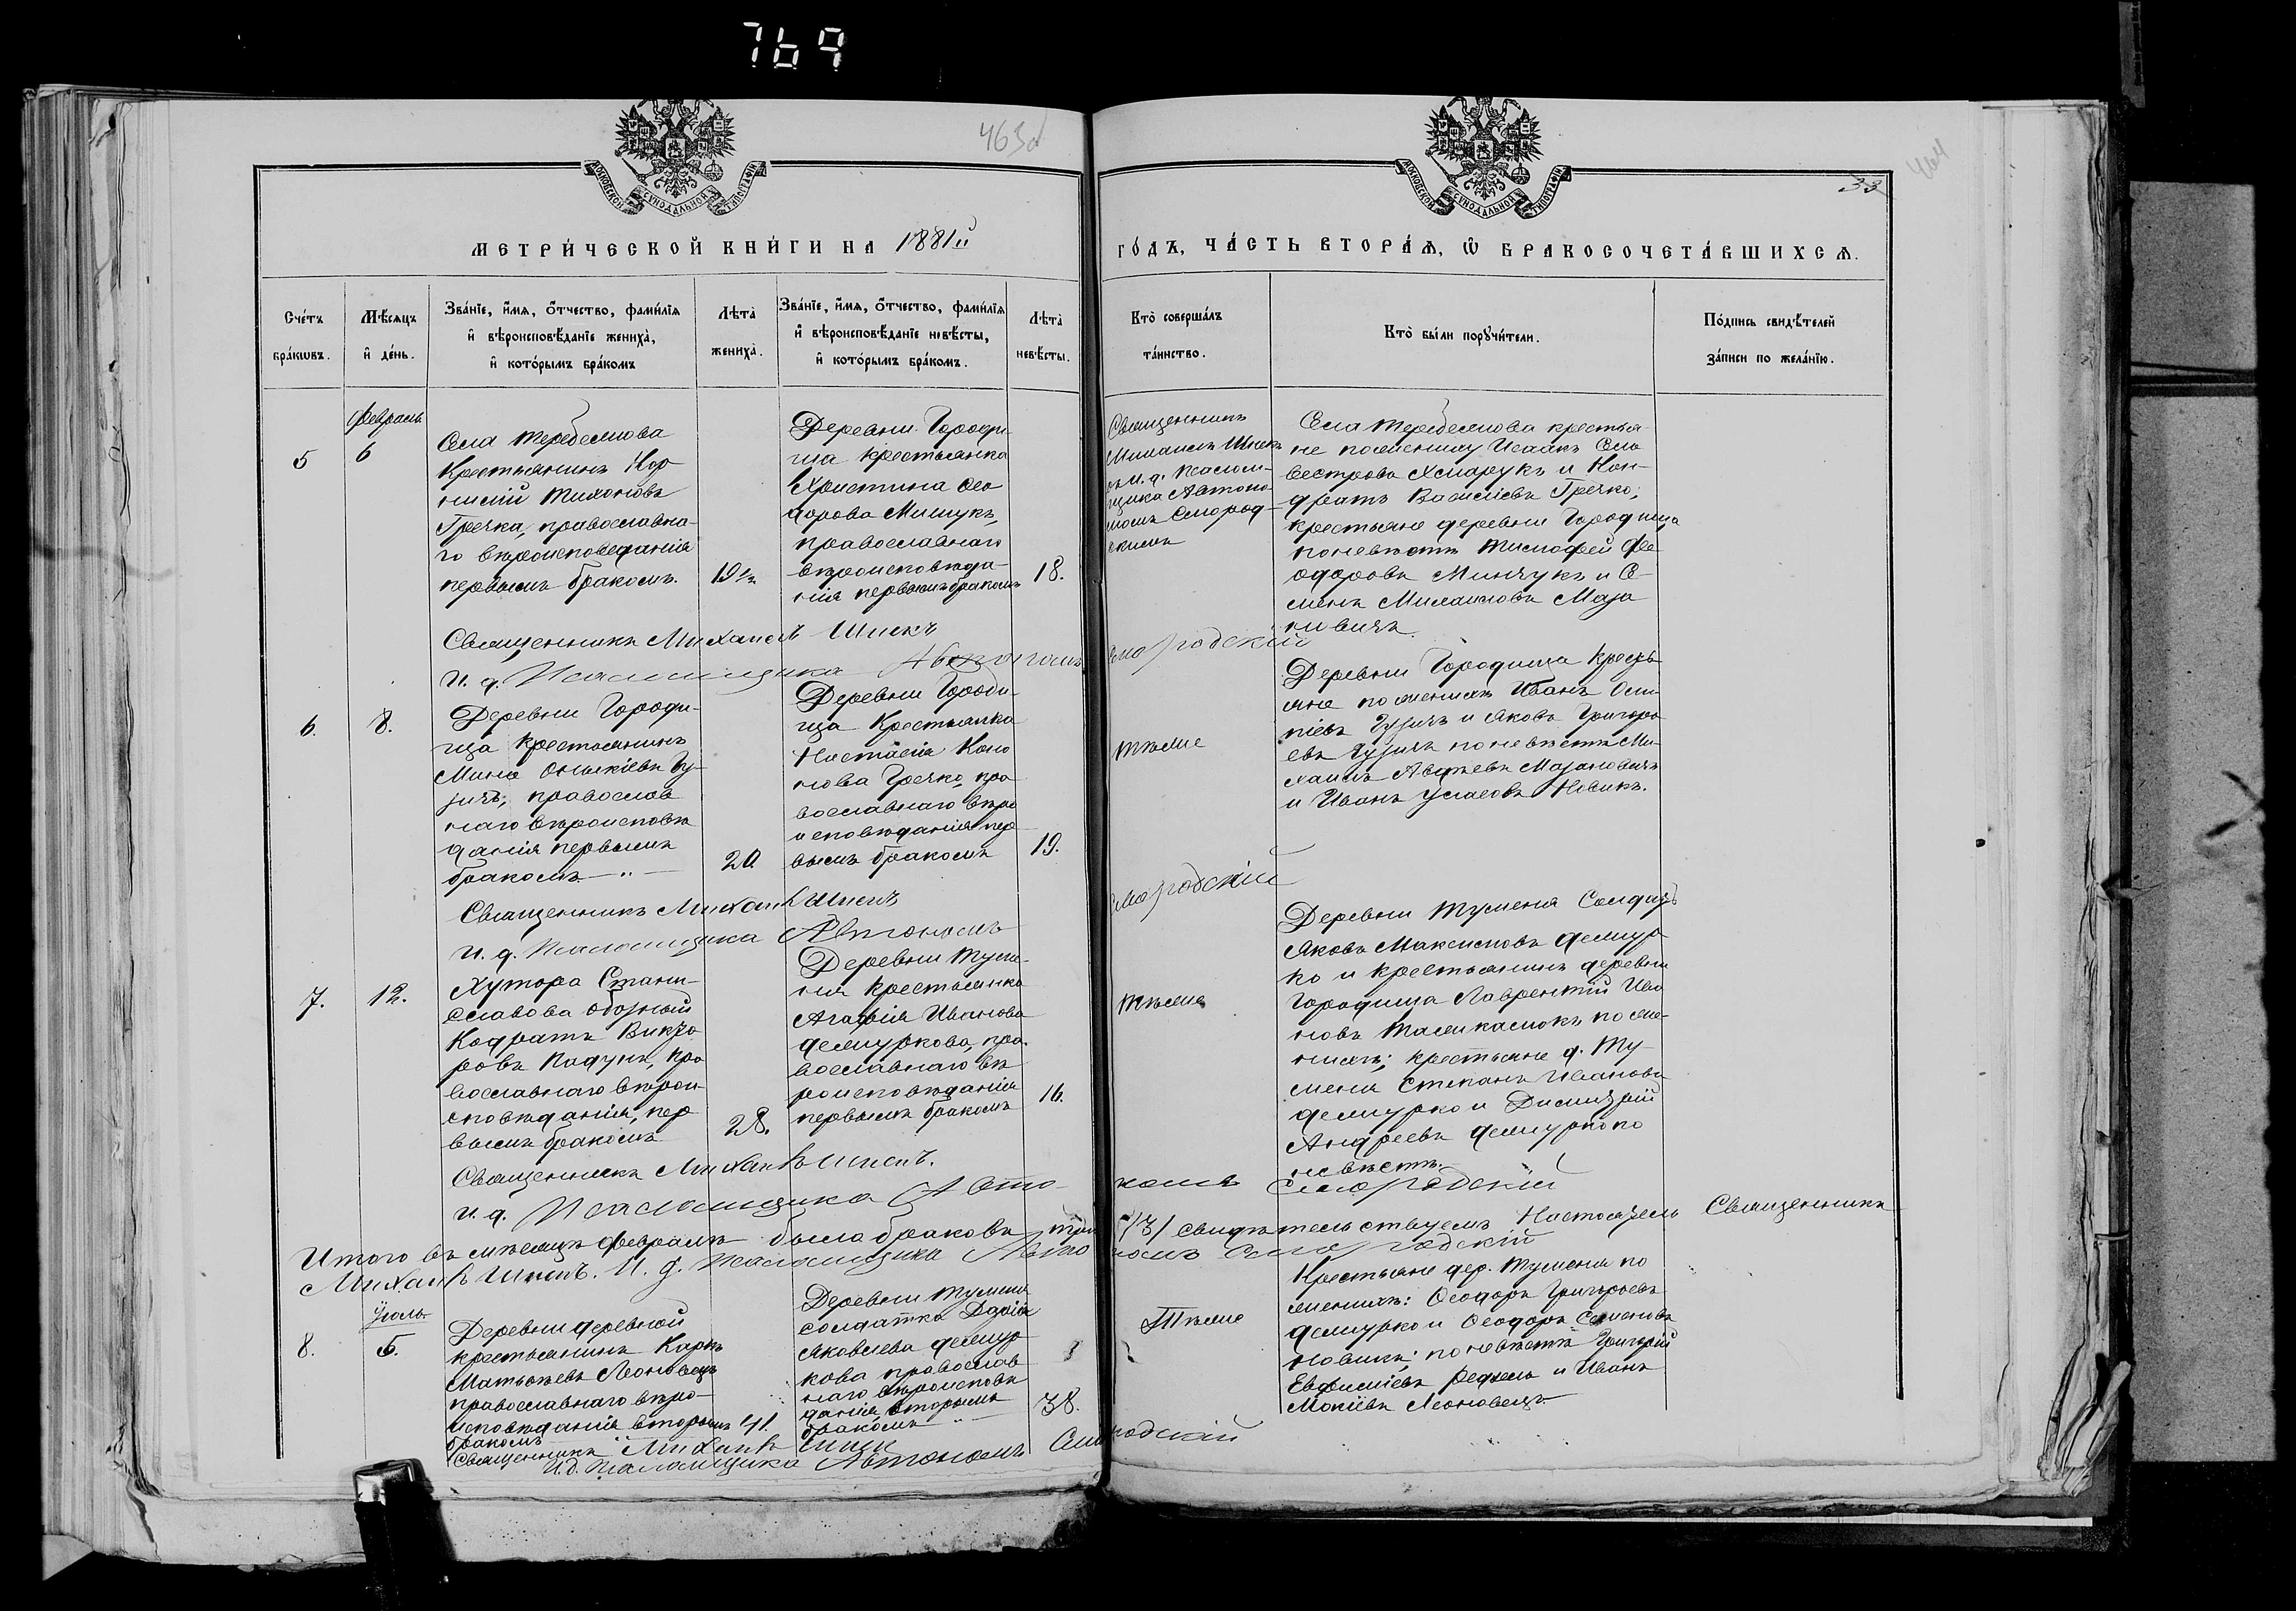 769
463об
464
33
МОСКОВСКОЙ СѴНОДАЛЬНОЙ ТИПОГРАФІИ
МОСКОВСКОЙ СѴНОДАЛЬНОЙ ТИПОГРАФІИ
МЕТРИ́ЧЕСКОЙ КНИ́ГИ НА 1881й
ГО́ДЪ, ЧА́СТЬ ВТОРА́Ѧ, Ѡ БРАКОСОЧЕТА́ВШИХСѦ.
Сче́тъ
бра́кѡвъ.
Мѣсѧцъ
и де́нь.
Зва́нїе, и҆мѧ, ѻ҆́тчество, фами́лїѧ
и҆ вѣроисповѣ́данїе жениха̀,
и҆ кото́рымъ бра́комъ
Лѣта̀
жениха̀.
Зва́нїе, и҆мѧ, ѻ҆́тчество, фами́лїѧ
и҆ вѣроисповѣ́данїе невѣ́сты,
и҆ кото́рымъ бра́комъ.
Лѣта̀
невѣ́сты.
Кто̀ соверша́лъ
та́инство.
Кто̀ бы́ли порꙋчи́тели.
По́дпись свидѣ́телей
за́писи по жела́нїю.
5
Февраль
6
Села Теребежова
Крестьянинъ Кор
нилій Тихоновъ
Гречка, православна-
го вѣроисповеданія
первымъ бракомъ.
19½
Деревни Городи
ща крестьянка
Христина Ѳео
дорова Мишукъ,
православнаго
вѣроисповѣда-
нія первымъ бракомъ
18.
Священникъ
Михаилъ Шпекъ
и. д. псалом-
щика Автоно
момъ Смород-
скимъ
Села Теребежова крестья
не по жениху Исаакъ Сель
вестровъ Хмарукъ и Кон-
дратъ Василіевъ Гречко,
крестьяне деревни Городища
по невѣстѣ Тимофей Ѳе
одоровъ Минчукъ и Се-
менъ Михаиловъ Маза
новичъ.
Священникъ Михаилъ Шпекъ
И. д. Псаломщика Автономъ Смородскій
6.
8.
Деревни Городи-
ща крестьянинъ
Мина Онькіевъ Гу
зичъ, православ
наго вѣроисповѣ
данія первымъ
бракомъ
20
Деревни Городи-
ща Крестьянка
Настасія Коно
нова Гречко, пра
вославнаго вѣро
исповѣданія пер
вымъ бракомъ
19.
Тѣмже
Деревни Городища кресть
яне по женихѣ Иванъ Оси
піевъ Гузичъ и Яковъ Григорь
евъ Гузичъ по невѣстѣ Ми-
хаилъ Авдѣевъ Мазановичъ
и Иванъ Новикъ.
Священникъ Михаилъ Шпекъ
И. д. Псаломщика Автономъ Смородскій
7.
12.
Хутора Стани-
славова обозный
Кодратъ Викто
ровъ Кодунъ, пра
вославнаго вѣрои
сповѣданія, пер
вымъ бракомъ
28.
Деревни Туме-
ня крестьянка
Агафія Иванова
Демчуркова, пра
вославнаго вѣ
роисповѣданія
первымъ бракомъ
16.
Тѣмже
Деревни Туменя Солдатъ
Яковъ Максимовъ Демчур
ко и крестьянинъ деревни
Городища Лаврентій Ива
новъ по же-
нихѣ; крестьяне д. Ту-
меня Степанъ Ивановъ
Демчурко и Димитрій
Андреевъ Демчурко по
невѣстѣ.
Священникъ Михаилъ Шпекъ.
И. д. Псаломщика Автономъ Смородскій
Итого въ мѣсяцѣ Февралѣ было браковъ три /3/ свидѣтельствуемъ Настоятель Священникъ
Михаилъ Шпекъ. И. д. Псаломщика Автономъ Смородскій
8.
Іюль
5.
Деревни деревной
крестьянинъ Карпъ
Матвѣевъ Леоновецъ
православнаго вѣро-
исповѣданія вторымъ
бракомъ
41.
Деревни Туменя
солдатка Дарія
Яковлева Демчур
кова православ
наго вѣроисповѣ
данія, вторымъ
бракомъ
38.
Тѣмже
Крестьяне дер. Туменя по
женихѣ: Ѳеодоръ Григорьевъ
Демчурко и Ѳеодоръ Семеновъ
Новикъ; по невѣстѣ Григорій
Евфиміевъ и Иванъ
Мокіевъ Леоновецъ.
Священникъ Михаилъ Шпекъ
И. д. Псаломщика Автономъ Смородскій